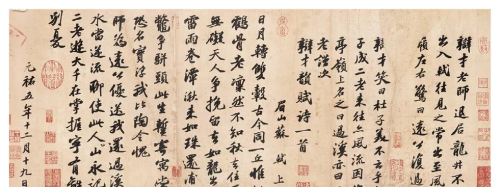 辯才老師退居龍井不
出入軾往見之常出至風
嶺左右驚曰遠公復過
辯才笑曰杜子美不云乎
子成二老來往亦風流因
亭嶺上名之曰過溪亦曰
老謹次
辯才韻賦詩一首
眉山蘇軾上
日月轉雙轂古今同一丘惟
鶴骨老凜然不知秋去住
無礙天人爭挽留去如龍出
雷雨卷潭湫來如珠還浦
鱉爭駢頭此生暫寄寓
恐名實浮我比陶令愧
師為遠公優送我還過溪
水當逆流聊使此山人永記
二老遊大千在掌握寧有
別憂
元祐五年十二月十九日